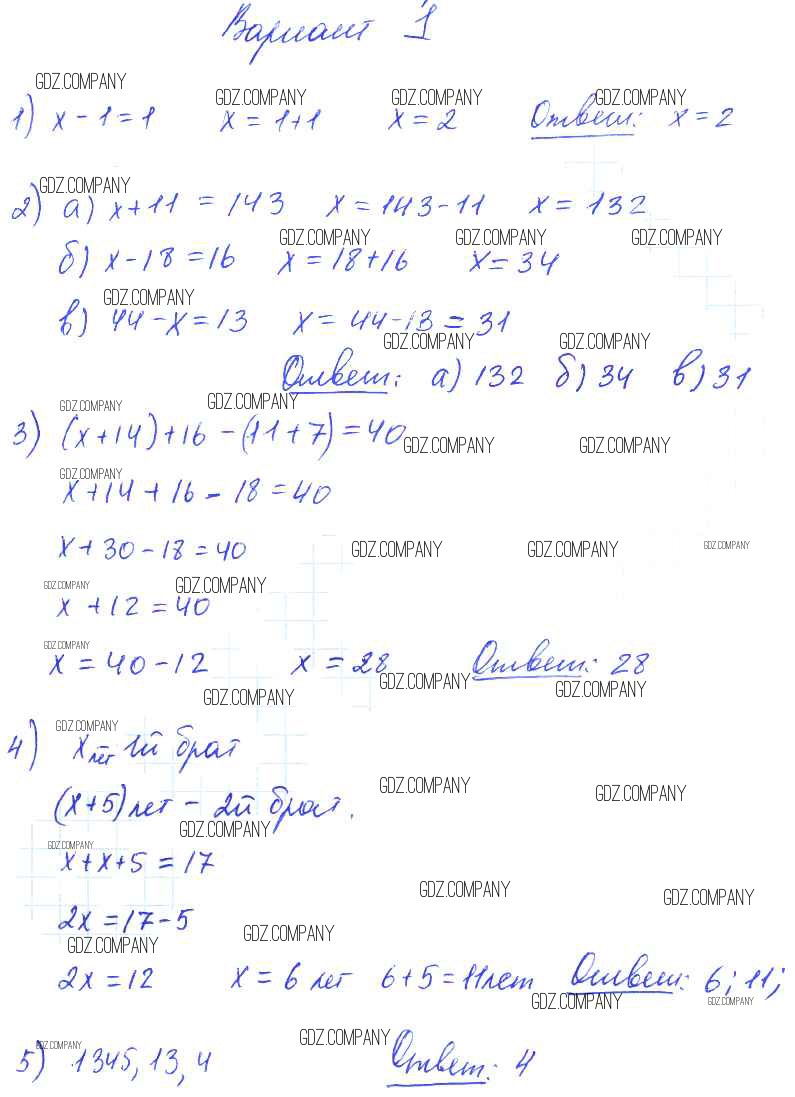 Вариант 1
GDZ.COMPANY
GDZ.COMPANY GDZ.COMPANY GDZ.COMPANY
1) x - 1 = 1 x = 1+1 x = 2 Ответ: x = 2
GDZ.COMPANY
2) а) x + 11 = 143 x = 143 - 11 x = 132
GDZ.COMPANY GDZ.COMPANY GDZ.COMPANY
б) x - 18 = 16 x = 18 + 16 x = 34
GDZ.COMPANY
в) 44 - x = 13 x = 44 - 13 = 31
GDZ.COMPANY GDZ.COMPANY
Ответ: а) 132 б) 34 в) 31
GDZ.COMPANY GDZ.COMPANY
3) (x + 14) + 16 - (11 + 7) = 40
GDZ.COMPANY GDZ.COMPANY
GDZ.COMPANY
x + 14 + 16 - 18 = 40
x + 30 - 18 = 40
GDZ.COMPANY GDZ.COMPANY GDZ.COMPANY
GDZ.COMPANY GDZ.COMPANY
x + 12 = 40
GDZ.COMPANY
x = 40 - 12 x = 28 Ответ: 28
GDZ.COMPANY GDZ.COMPANY GDZ.COMPANY
GDZ.COMPANY
4) x лет 1й брат
GDZ.COMPANY GDZ.COMPANY
(x + 5) лет - 2й брат.
GDZ.COMPANY
GDZ.COMPANY
x + x + 5 = 17
GDZ.COMPANY GDZ.COMPANY
2x = 17 - 5
GDZ.COMPANY GDZ.COMPANY
2x = 12 x = 6 лет 6 + 5 = 11 лет Ответ: 6; 11;
GDZ.COMPANY GDZ.COMPANY
GDZ.COMPANY GDZ.COMPANY
5) 1345, 13, 4 Ответ: 4